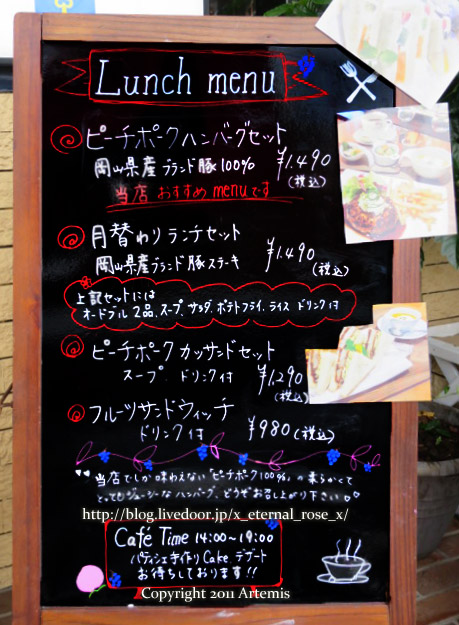 Lunch menu
ピーチポークハンバーグセット
岡山県産ブランド豚100% ¥1.490
(税込)
当店 おすすめ menuです
月替わりランチセット
岡山県産ブランド豚ステーキ ¥1.490
(税込)
上記セットには
オードブル2品、スープ、サラダ、ポテトフライ、ライス ドリンク付
ピーチポークカツサンドセット
スープ、ドリンク付 ¥1,290
(税込)
フルーツサンドウィッチ
ドリンク付 ¥980(税込)
当店でしか味わえない「ピーチポーク100%」の柔らかくて
とってもジューシーなハンバーグ、どうぞお召し上がり下さい
http://blog.livedoor.jp/x_eternal_rose_x/
Café Time 14:00~19:00
パティシエ手作りCake、デザート
お待ちしております!!
Copyright 2011 Artemis